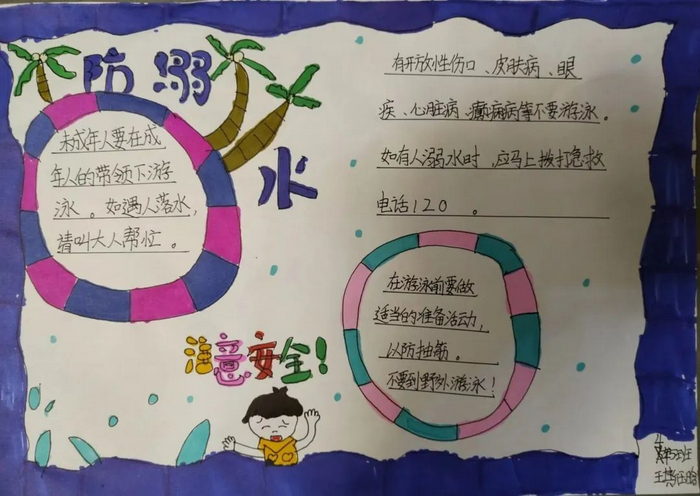 防溺
水
未成年人要在成
年人的带领下游
泳。如遇人落水,
请叫大人帮忙。
有开放性伤口、皮肤病、眼
疾、心脏病、癫痫病等不要游泳。
如有人溺水时,应马上拨打急救
电话120。
在游泳前要做
适当的准备活动,
以防抽筋。
不要到野外游泳!
注意安全!